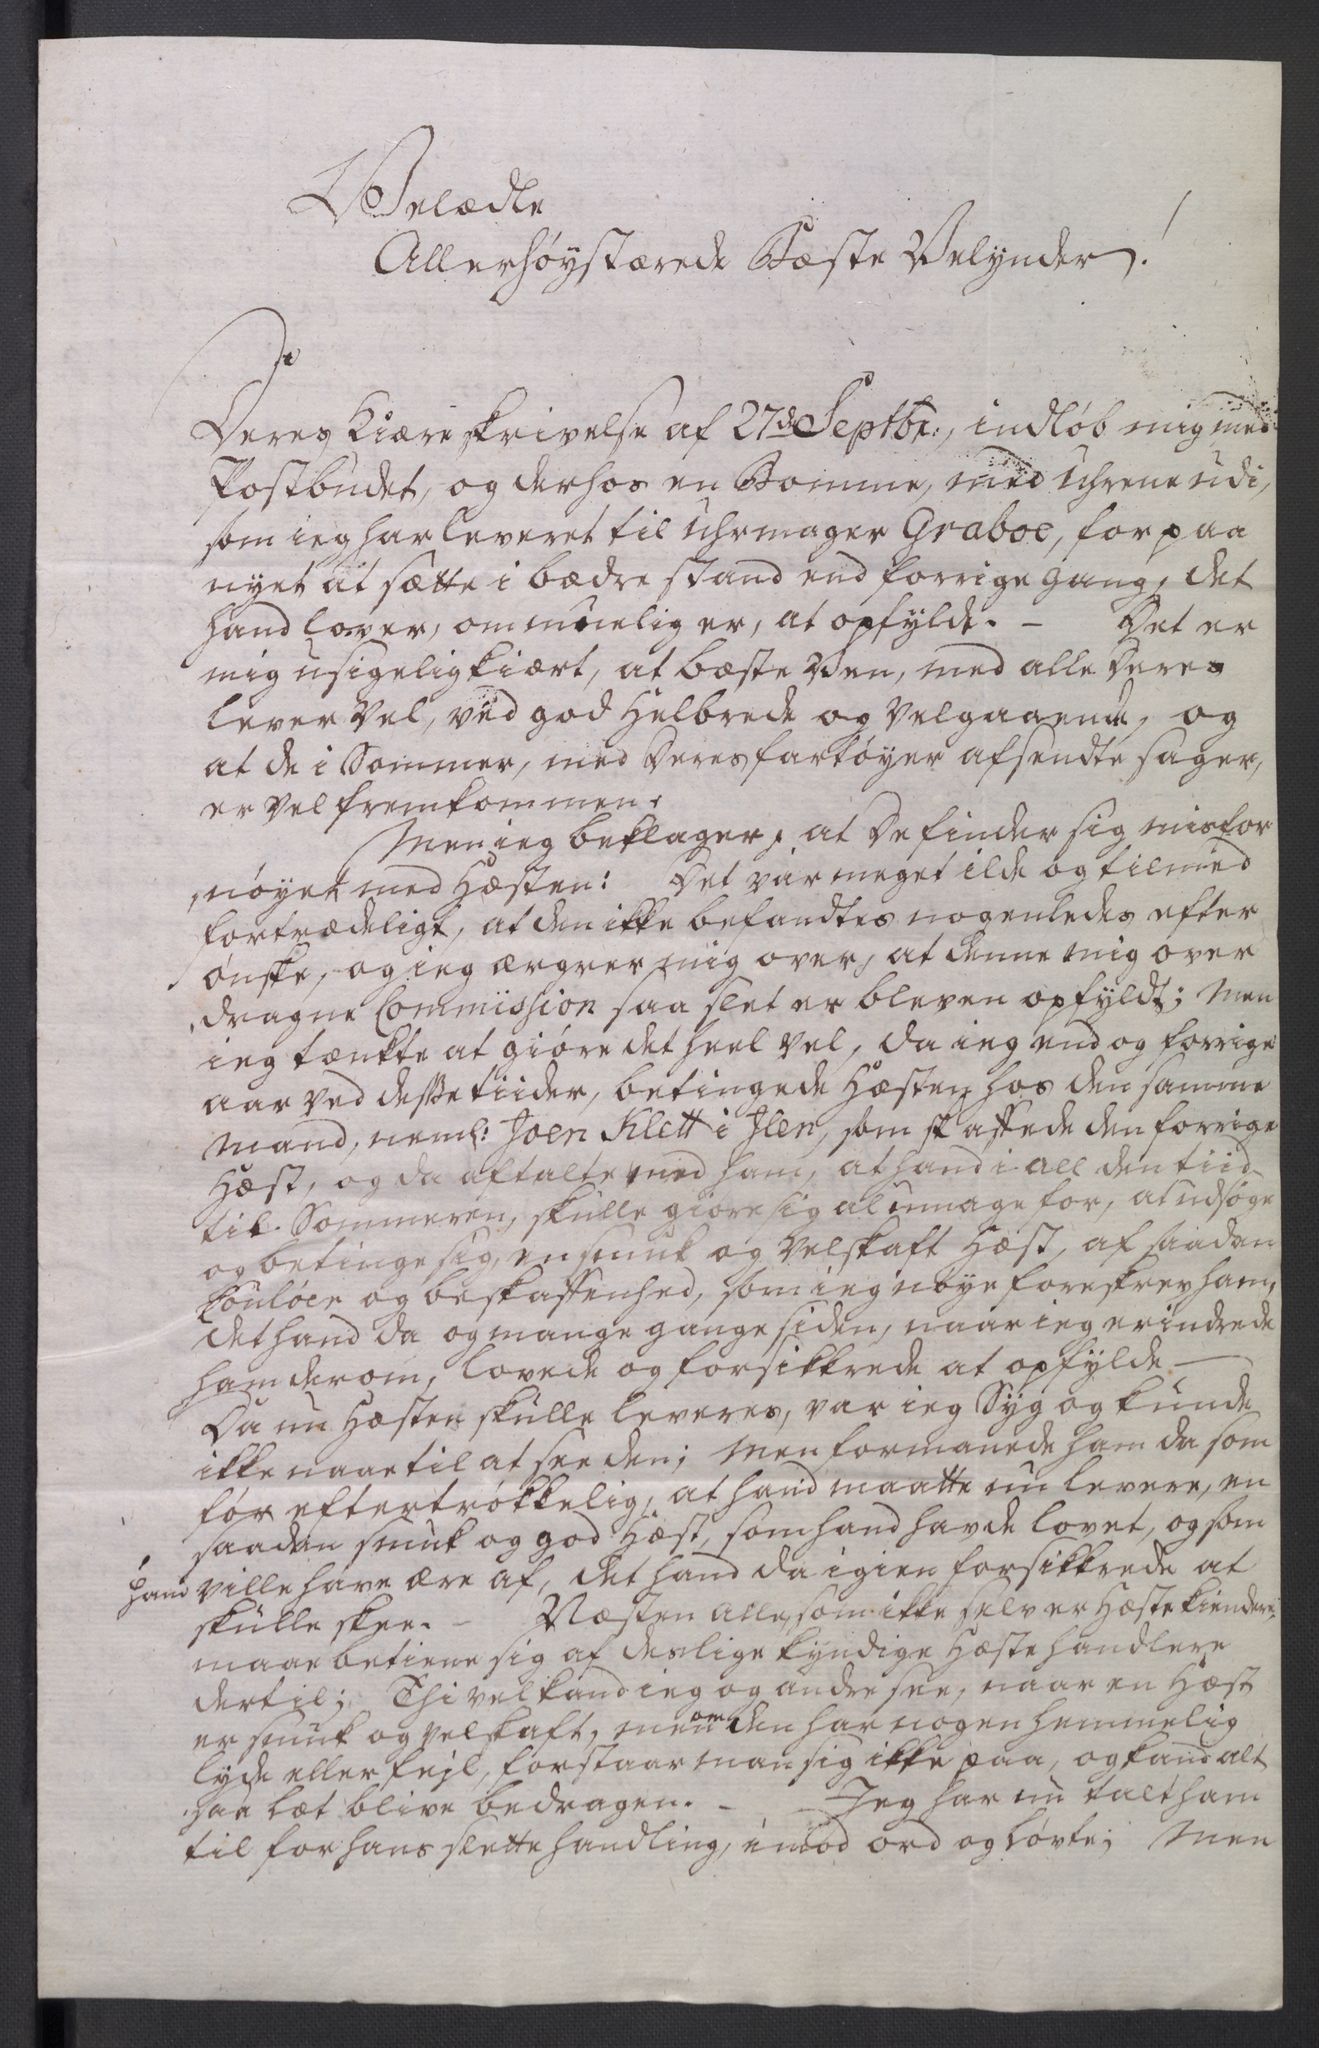 Velædle
Allerhøystærede Bæste Velynder!
Deres Kiære skrivelse af 27de Septbr:, indløb mig med
Postbudet, og derhos en Bomme, med Uhrene udi,
som ieg har leveret til Uhrmager Graboe, for paa
nyet at sætte i bædre stand end forrige gang, det
hand lover, om muelig er, at opfylde. - Det er
mig usigelig kiært, at bæste Ven, med alle Deres
lever vel, ved god Helbrede og Velgaaende, og
at de i Sommer, med Deres fartøyer afsendte sager,
er vel fremkommen.
Men ieg beklager, at De finder sig misfor
nøyet med Hæsten: Det var meget ilde og tilmed
fortrædeligt, at den ikke befandtes nogenledes efter
ønske, og ieg ærgrer mig over, at denne mig over
dragne Commission saa slet er bleven opfyldt; Men
ieg tænkte at giøre det heel vel, da ieg end og forrige
aar ved desse tiider, betingede Hæsten hos den samme
Mand, neml: Joen Klett i Ilen, som skaffede den forrige
Hæst, og da aftalte med ham, at hand i all den tiid
til Sommeren, skulle giøre sig al umage for, at udsøge
og betinge sig, en smuk og Velskaft Hæst, af saadan
Couløer og beskaffenhed, som ieg nøye foreskrev ham,
det hand da og mange gange siden, naar ieg erindrede
ham derom, lovede og forsikkrede at opfylde -
Da nu Hæsten skulle leveres, var ieg Syg og kunde
ikke naae til at see den; Men formanede ham da som
før eftertrøkkelig, at hand maatte nu levere, en
saadan smuk og god Hæst, som hand havde lovet, og som
hand ville have ære af, det hand da igien forsikkrede at
skulle skee. - Næsten alle, som ikke selv er Hæste kiendere,
maae betiene sig af deslige kyndige Hæste handlere
dertil; Thi vel kand ieg og andre see, naar en Hæst
er smuk og velskaft, men om den har nogen hemmelig
lyde eller feyl, forstaar man sig ikke paa, og kand alt
saa læt blive bedragen. - Jeg har nu talt ham
til for hans slette handling, imod ord og løvte; Men